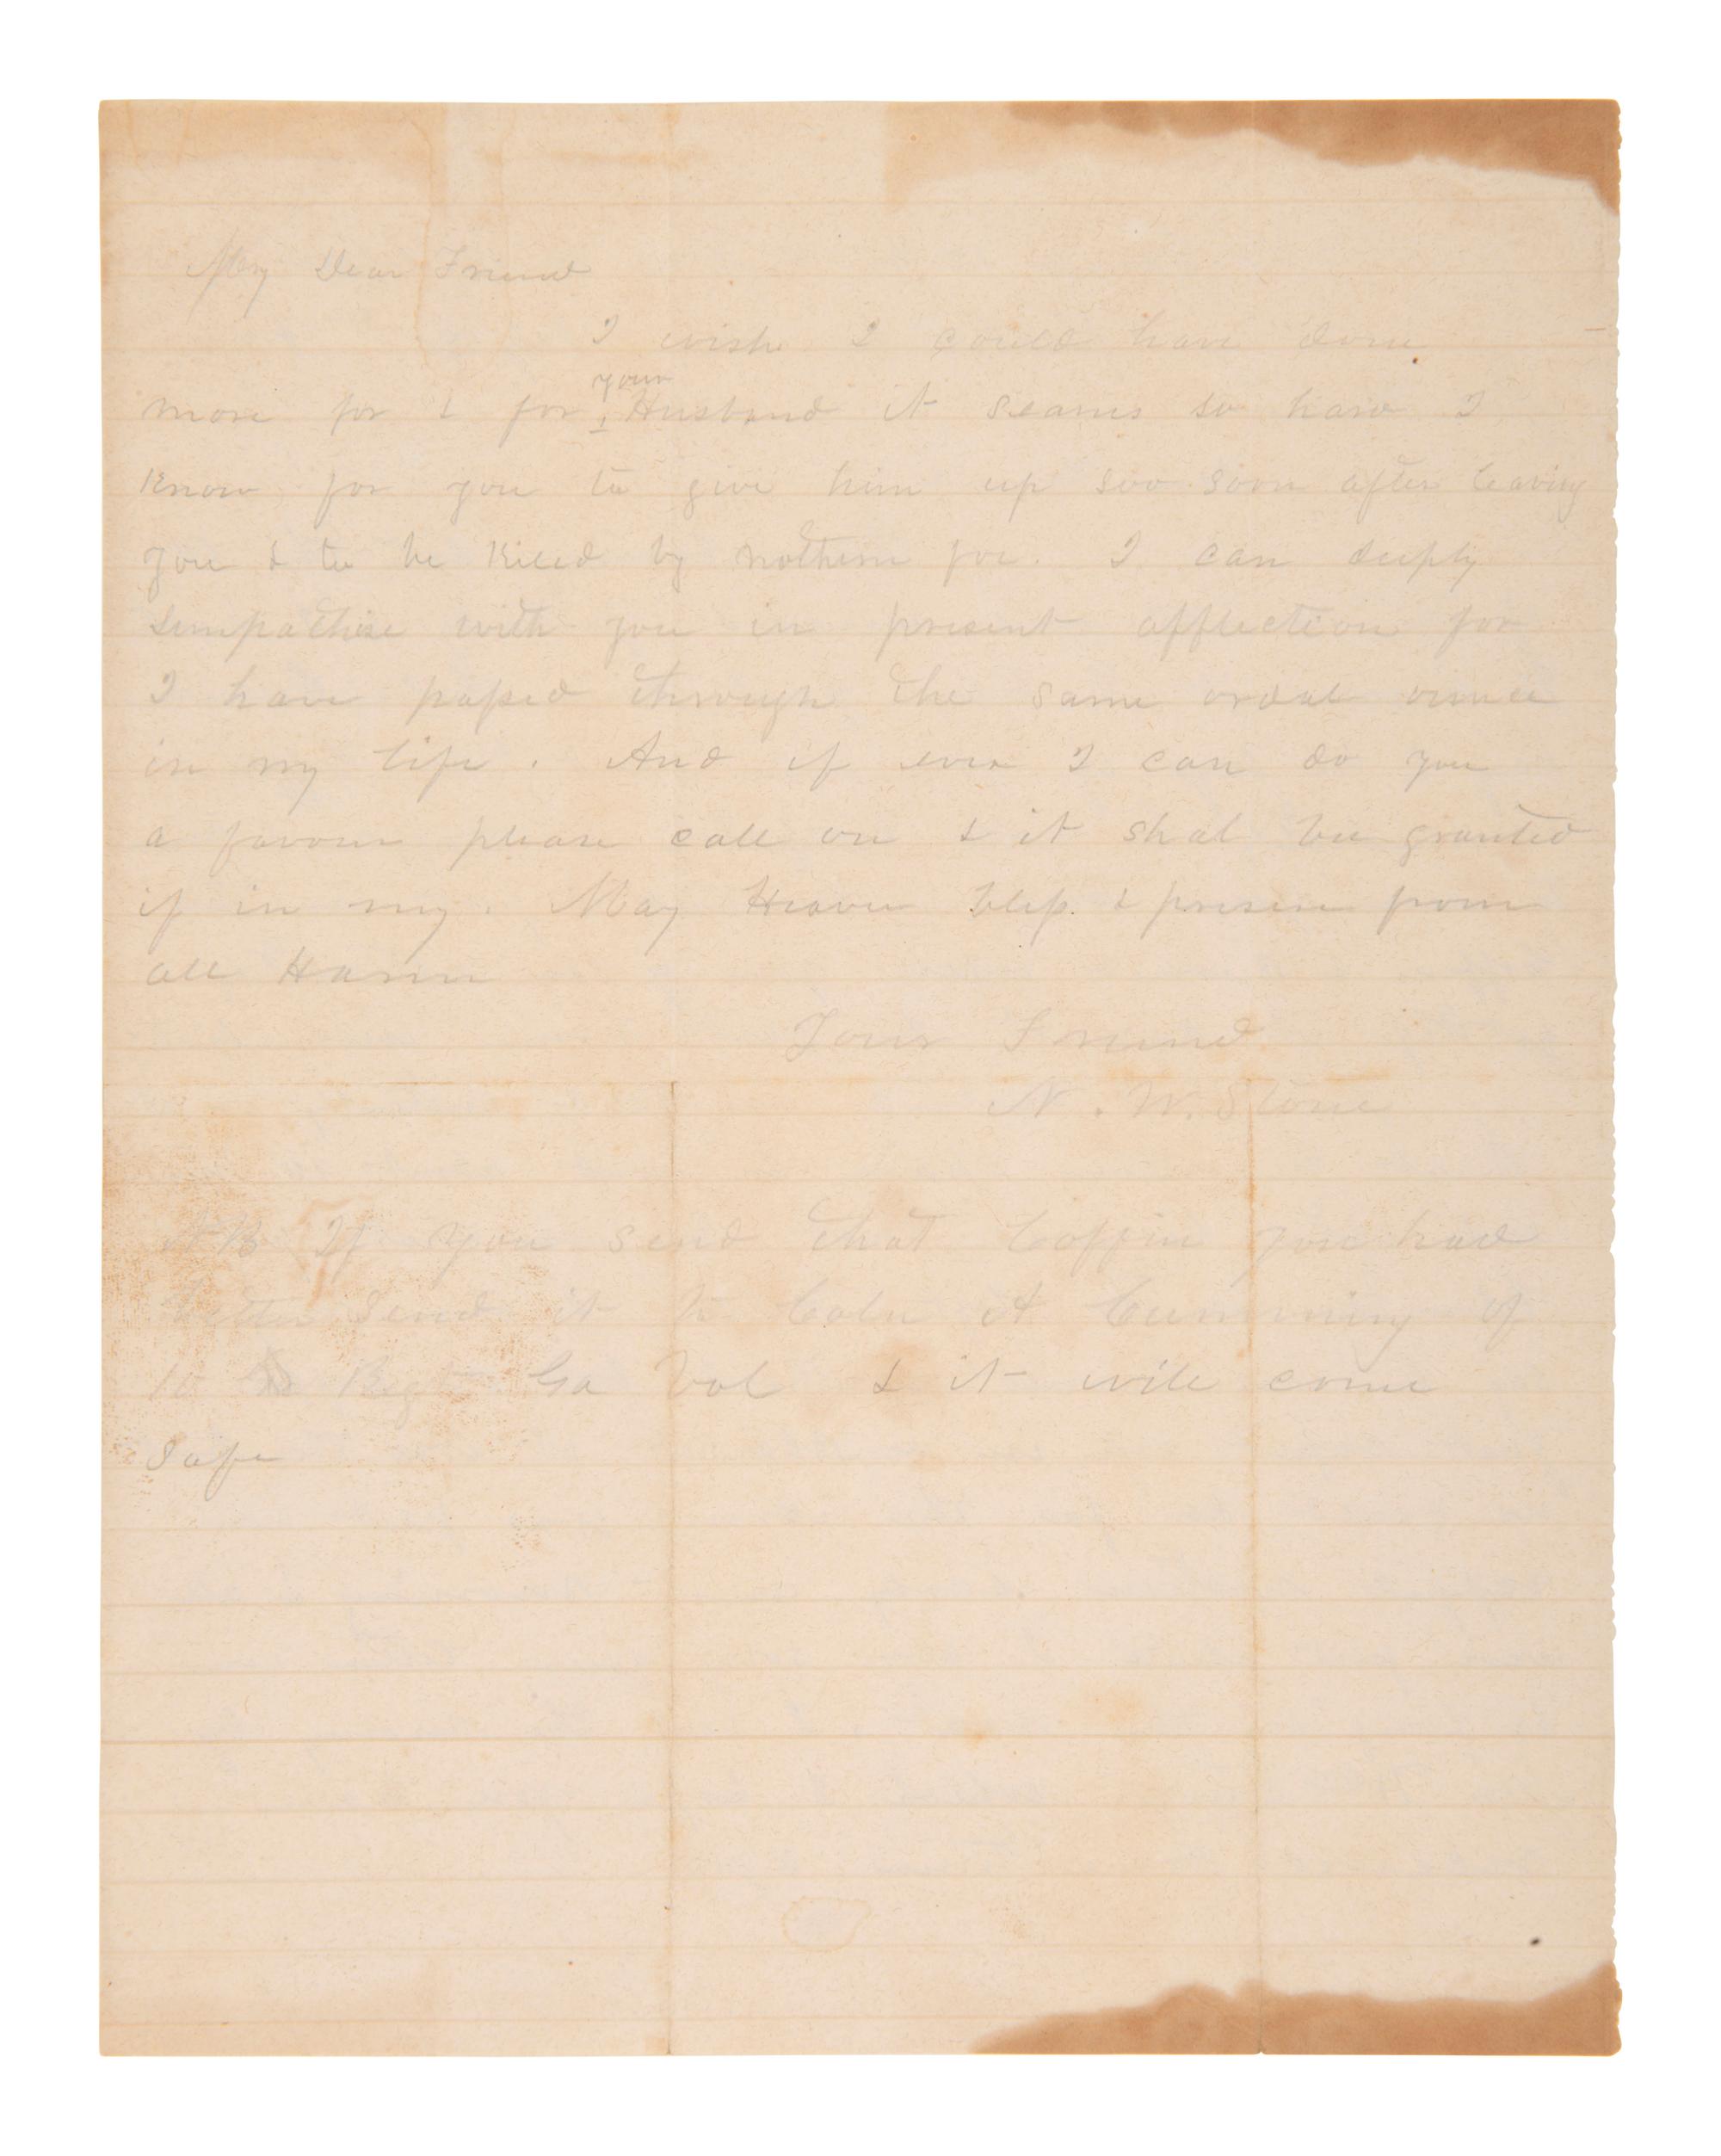 My Dear Friend
I wish I could have done
more for & for your Husband it seams so hard I
know for you to give him up soo soon after leaving
you & to be kiled by nothern foe. I can deeply
simpathise with you in present afflection for
I have passed through the same ordeal
in my life. And if ever I can do you
a favour please call on & it shal bee granted
if in my. May Heaven bless & preserve from
all Harm
Your Friend
N. W. Stone
NB If you send that Coffin you had
better send it to Coln A Cumming of
10 Regt Ga Vol & it will come
Safe